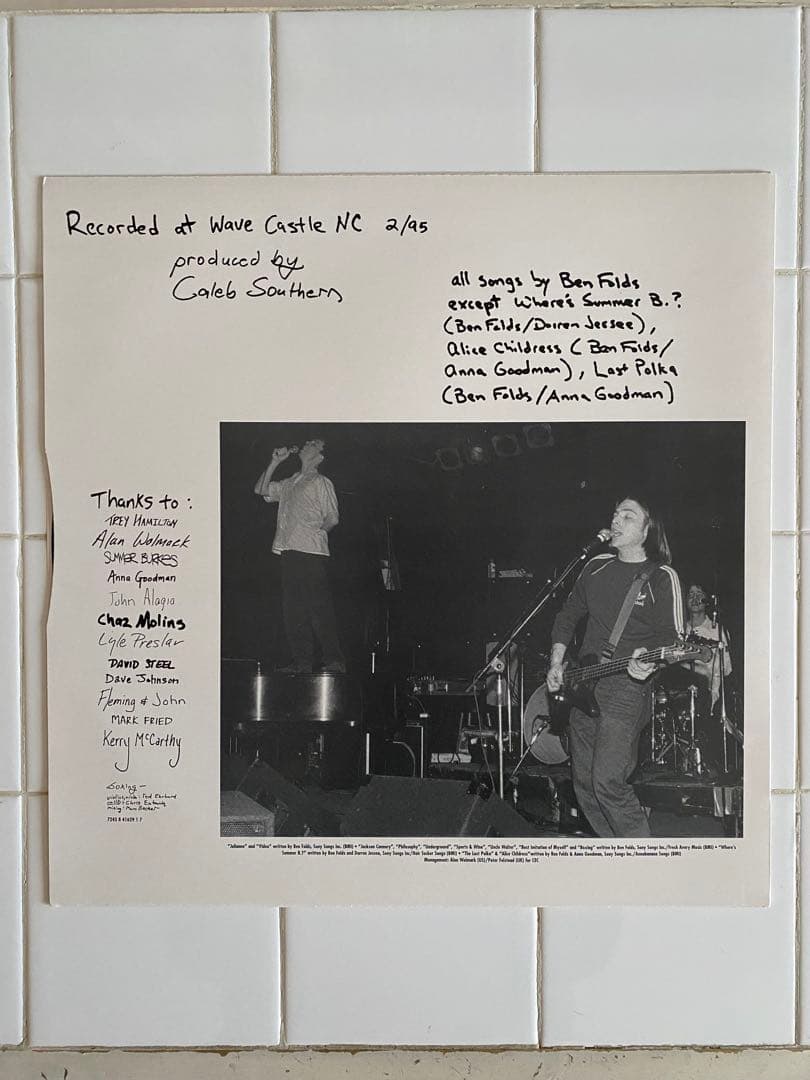 Recorded at Wave Castle NC 2/95
produced by
Caleb Southern
all songs by Ben Folds
except Where's Summer B.?
(Ben Folds/Darren Jessee),
Alice Childress (Ben Folds/
Anna Goodman), Last Polka
(Ben Folds/Anna Goodman)
Thanks to:
TREY HAMILTON
Alan Wolmack
SUMMER BURKES
Anna Goodman
John Alagia
Chaz Molins
Lyle Preslar
DAVID STEEL
Dave Johnson
Fleming & John
MARK FRIED
Kerry McCarthy
Boxing -
Ted Ehrhard
cello: Chris
mixing: Marc Becker
7243 8 41629 1 7
"Julianne" and "Video" written by Ben Folds, Sony Songs Inc. (BMI) • "Jackson Cannery", "Philosophy", "Underground", "Sports & Wine", "Uncle Walter", "Best Imitation of Myself" and "Boxing" written by Ben Folds, Sony Songs Inc./Fresh Avery Music (BMI) • "Where's
Summer B.?" written by Ben Folds and Darren Jessee, Sony Songs Inc/Hair Sucker Songs (BMI) • "The Last Polka" & "Alice Childress" written by Ben Folds & Anna Goodman, Sony Songs Inc./Annabanana Songs (BMI)
Management: Alan Wolmark (US)/Peter Felstead (UK) for CEC